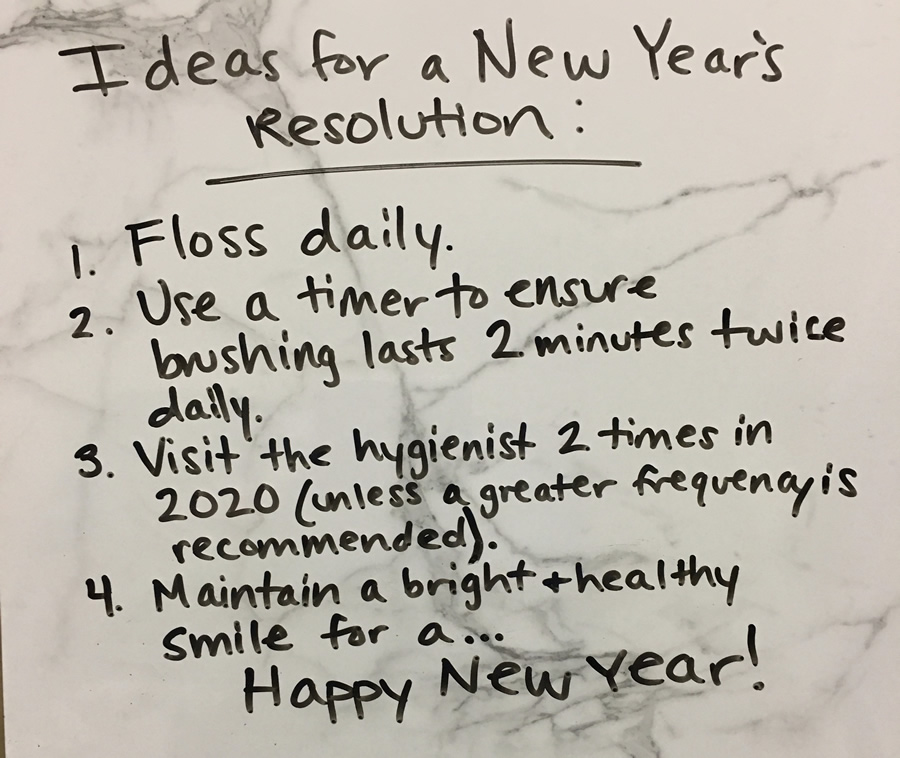 Ideas for a New Year's
Resolution:
1. Floss daily.
2. Use a timer to ensure
brushing lasts 2 minutes twice
daily.
3. Visit the hygienist 2 times in
2020 (unless a greater frequency is
recommended).
4. Maintain a bright + healthy
smile for a...
Happy New Year!